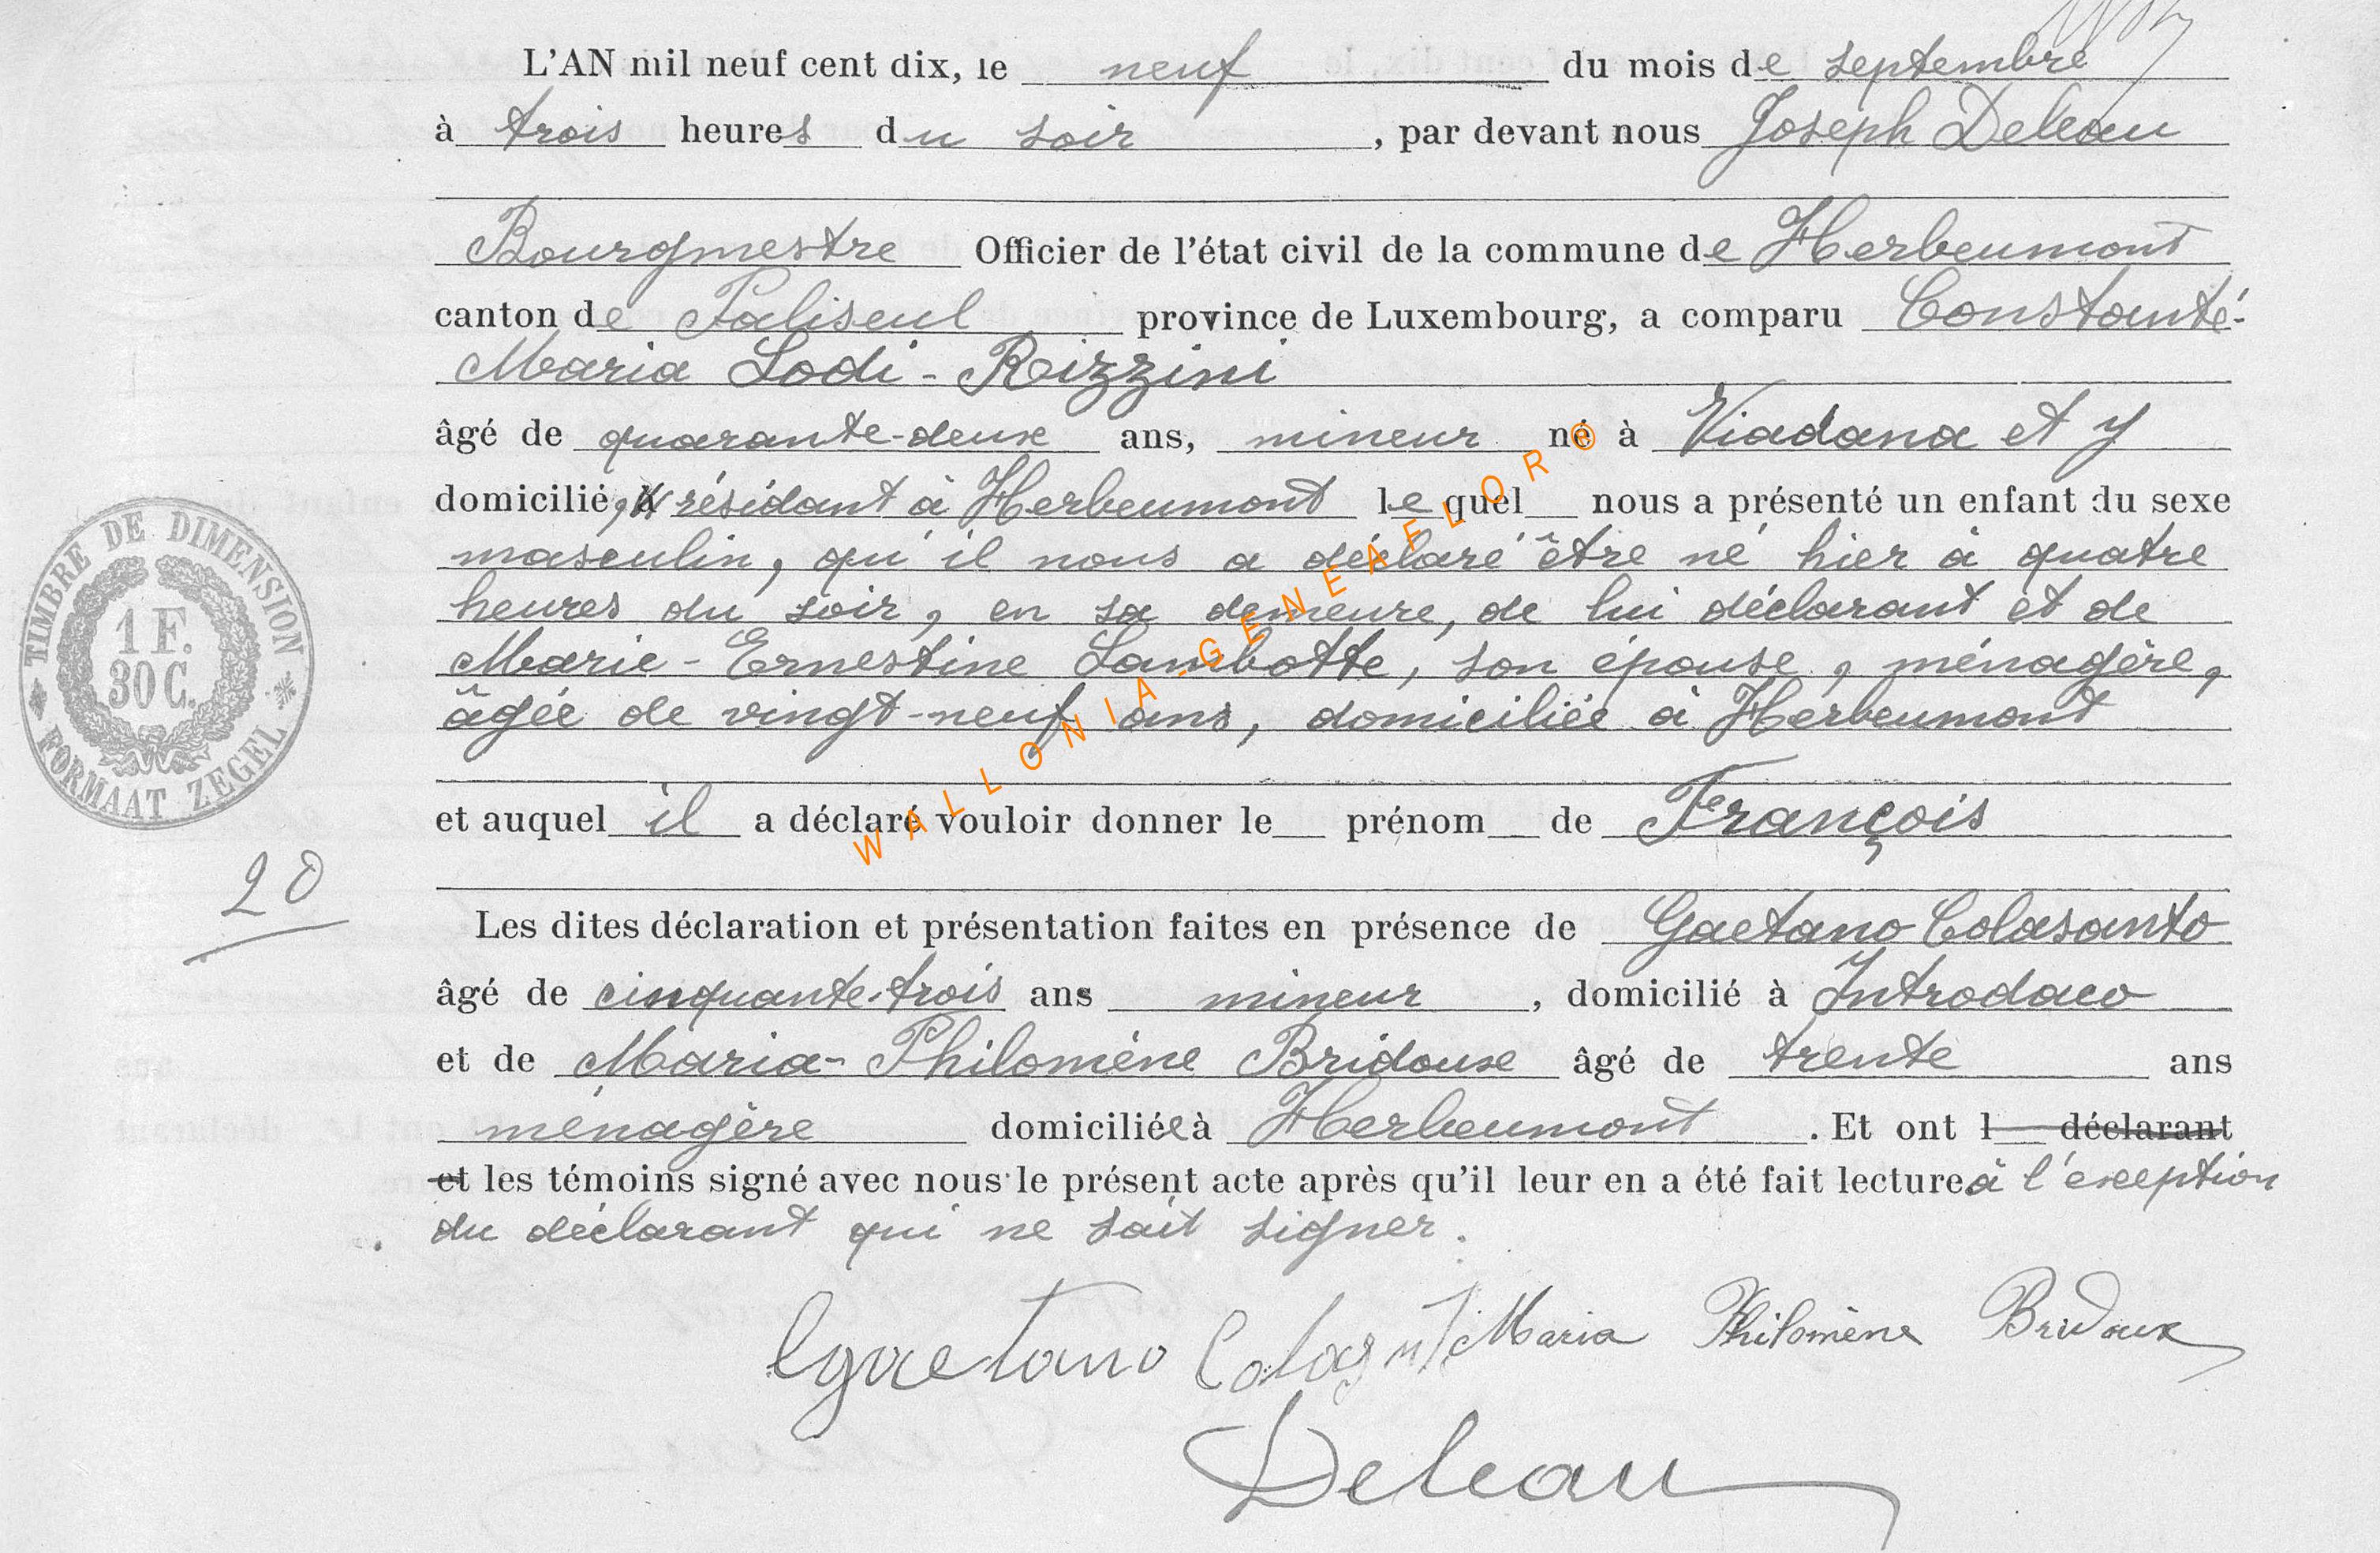 L'AN mil neuf cent dix, le neuf du mois de septembre
à trois heures du soir , par devant nous Joseph Deleau
Bourgmestre Officier de l'état civil de la commune de Herbeumont
canton de Paliseul province de Luxembourg, a comparu Constanté-
Maria Lodi-Rizzini
âgé de quarante-deux ans, mineur né à Viadana et y
domicilié, résidant à Herbeumont lequel nous a présenté un enfant du sexe
masculin, qu'il nous a déclaré être né hier à quatre
heures du soir, en sa demeure, de lui déclarant et de
Marie-Ernestine Lambotte, son épouse, ménagère,
âgée de vingt-neuf ans, domiciliée à Herbeumont
et auquel il a déclaré vouloir donner le prénom de François
Les dites déclaration et présentation faites en présence de Gaetano Colasanto
âgé de cinquante-trois ans mineur , domicilié à Introdaco
et de Maria-Philomène Bridoux âgé de trente ans
ménagère domiciliée à Herbeumont . Et ont l déclarant
et les témoins signé avec nous le présent acte après qu'il leur en a été fait lecture à l'exeption
du déclarant qui ne sait signer.
TIMBRE DE DIMENSION
1 F.
30 C.
FORMAAT ZEGEL
20
WALLONIA-GENEAFLOR©
Gaetano Maria Philomène Bridoux
Deleau